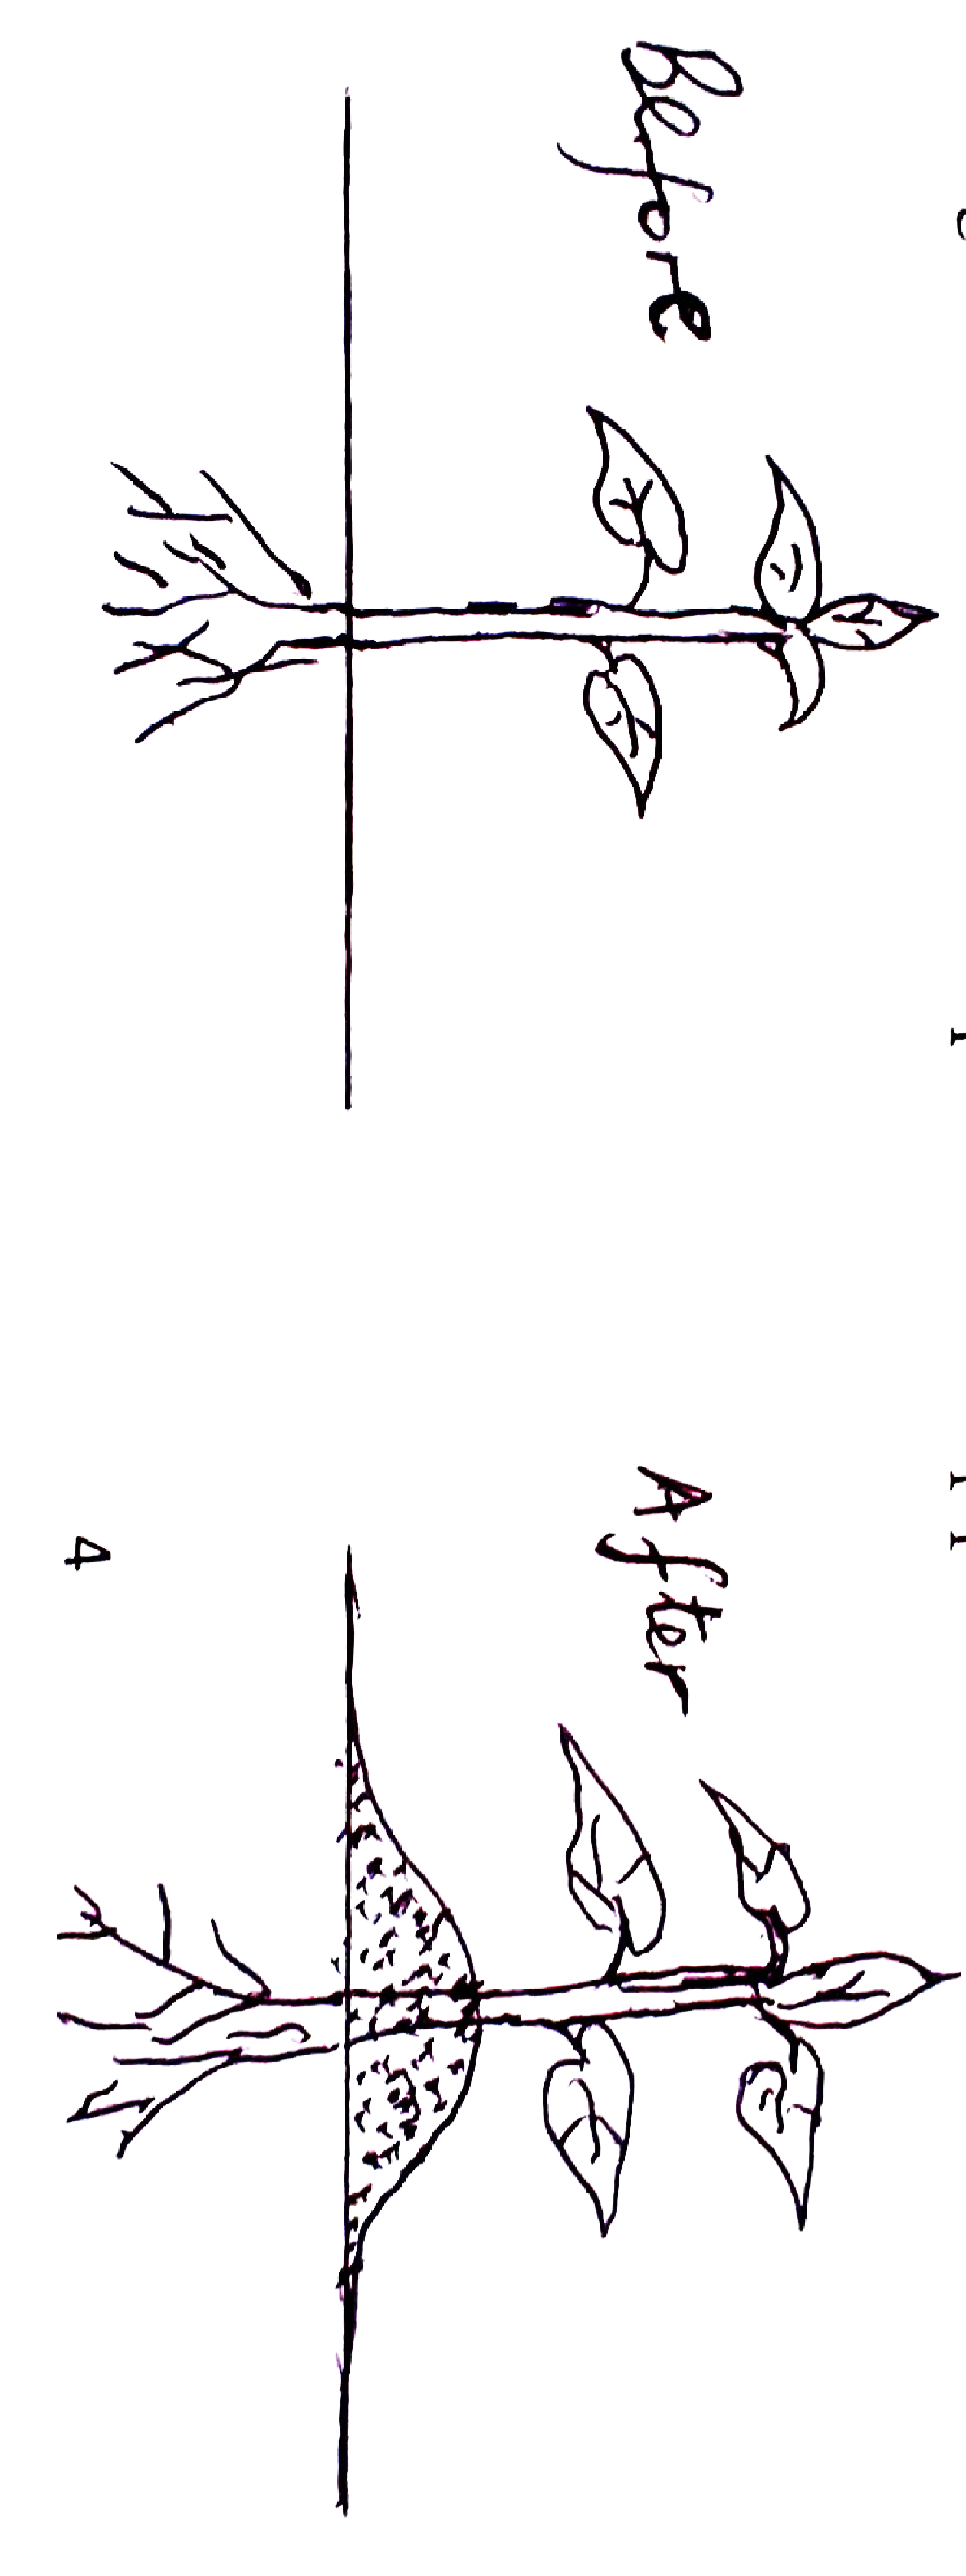 Before
After
4